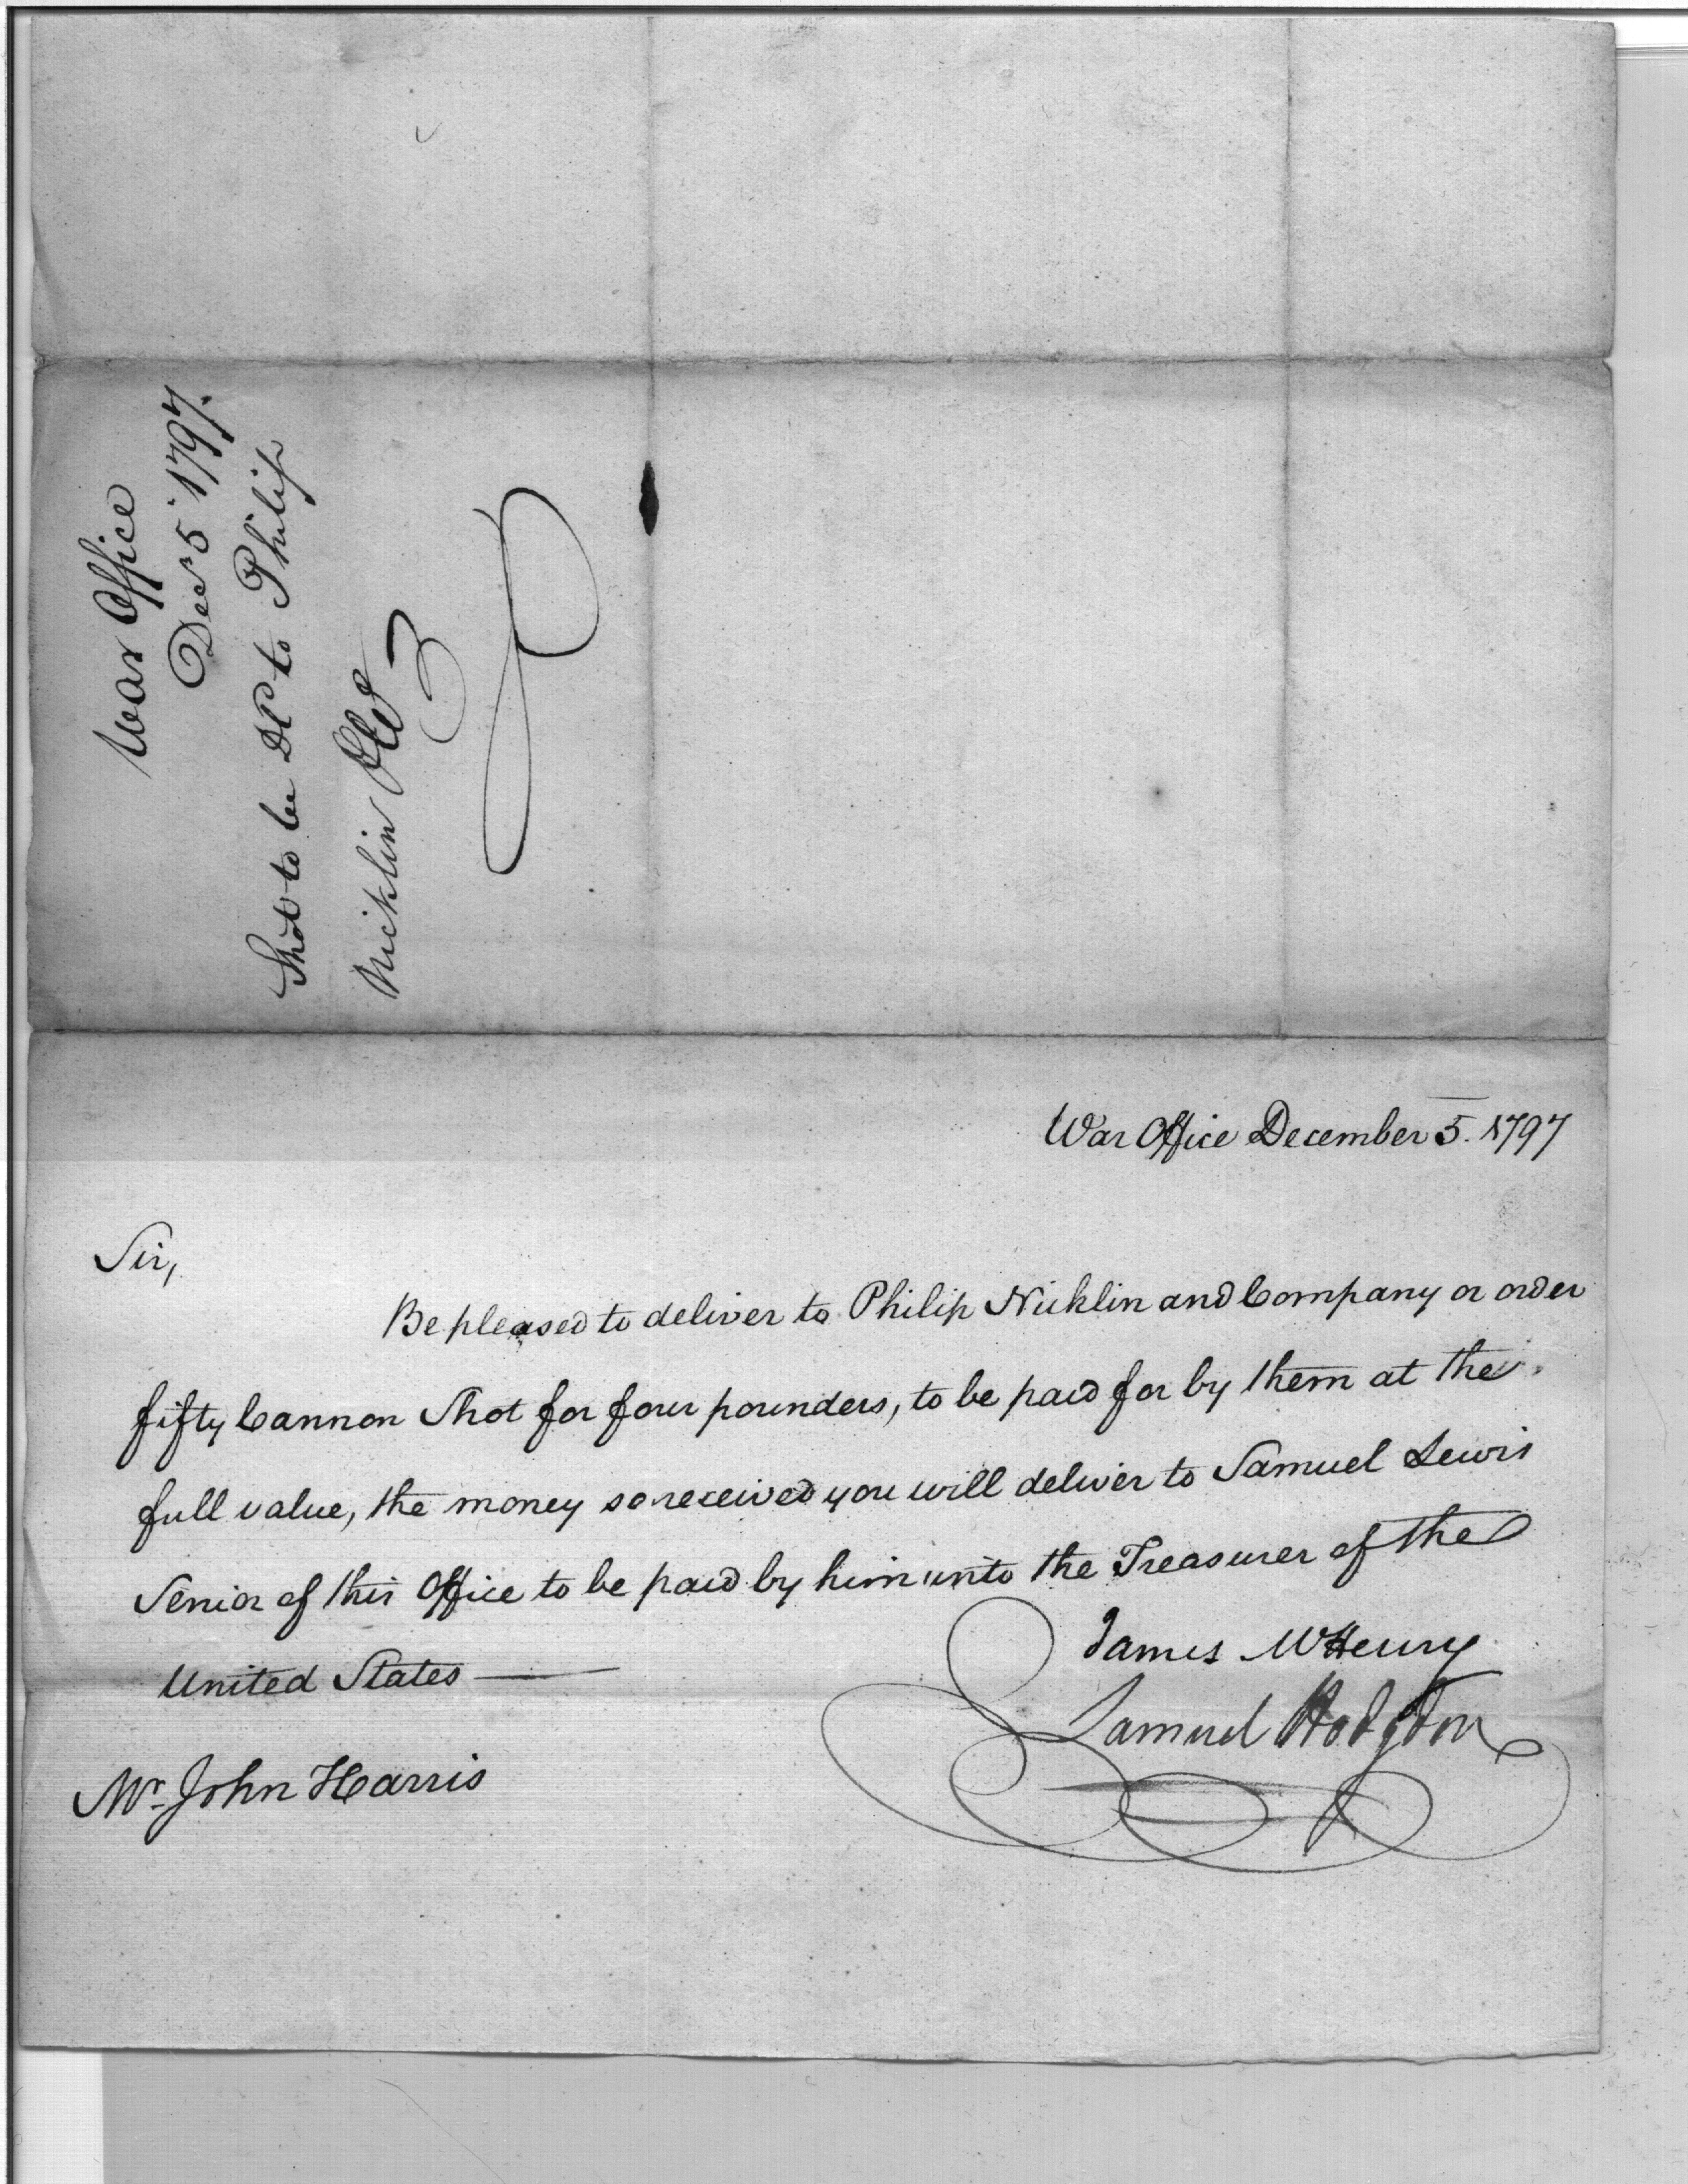 War Office
Decr 5 1797.
Shot to be Dd to Philip
Nicklin &Co
War Office December 5. 1797
Sir,
Be pleased to deliver to Philip Nicklin and Company or order
fifty Cannon Shot for four pounders, to be paid for by them at the
full value, the money so received you will deliver to Samuel Lewis
Senior of this Office to be paid by him unto the Treasurer of the
United States
James McHenry
Samuel Hodgdon
Mr. John Harris